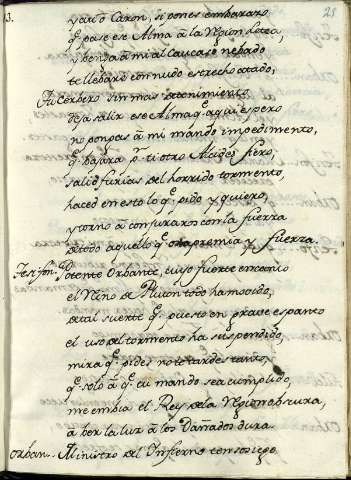 13.
25
y au o Caron, si pones embarazo
q. pase ese Alma à la Region Lotea,
y pensa à mi al Caucaso nebado
te llebare con nudo estrecho atado,
Tu Cerbero sin mas detenimiento
deja salir ese Alma q. aqui espero
no pongas à mi mando impedimento,
q. bajara p. ti otro Alcides fiero,
salid furias del horrido tormento,
haced en esto lo q. pido y quiero,
y torno à conjuraros con la fuerza
de todo aquello q. apremia y fuerza.
Tesifon. Potente Orbante, cuyo fuerte encanto
el Reino de Pluton todo ha movido,
de tal suerte q. puesto en grave espanto
el uso del tormento ha suspendido,
mira q. pides no te tardes tanto,
q. solo à q. tu mando sea cumplido,
me embia el Rey de la Region obscura,
à ber la luz à los Dañados dura.
Orban. Ministro del Infierno con sosiego